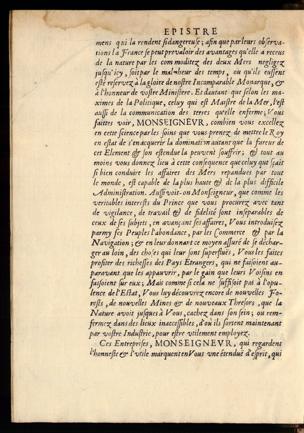 EPISTRE
mens qui la rendent si dangereuse; afin que par leurs observa-
tions la France se peut prevaloir des avantages qu'elle a receus
de la nature par les commoditez des deux Mers negligez
jusqu'icy, soit par le malheur des temps, ou qu'ils eussent
esté reservez à la gloire de nostre Incomparable Monarque, &
à l'honneur de vostre Ministere. Et dautant que selon les ma-
ximes de la Politique, celuy qui est Maistre de la Mer, l'est
aussi de la communication des terres qu'elle enferme, Vous
faittes voir, MONSEIGNEVR, combien vous excellez
en cette science par les soins que vous prenez de mettre le Roy
en estat de s'en acquerir la domination autant que la fureur de
cet Element & son estenduë le peuvent souffrir; & tout au
moins vous donnez lieu à cette consequence que celuy qui sçait
si bien conduire les affaires des Mers repandues par tout
le monde, est capable de la plus haute & de la plus difficile
Administration. Aussi voit-on Monseigneur, que comme les
veritables interests du Prince que vous procurez avec tant
de vigilance, de travail & de fidelité sont inseparables de
ceux de ses sujets, en avançant ses affaires, Vous introduisez
parmy ses Peuples l'abondance, par les Commerce & par la
Navigation; & en leur donnant ce moyen assuré de se déchar-
ger au loin, des choses qui leur sont superfluës, Vous les faites
profiter des richesses des Pays Etrangers, qui ne faisoient au-
paravant que les appauvrir, par le gain que leurs Voisins en
faisoient sur eux; Mais comme si cela ne suffisoit pas à l'opu-
lence de l'Estat, Vous luy découvrez encore de nouvelles Fo-
rests, de nouvelles Mines & de nouveaux Thresors, que la
Nature avoit jusques à Vous, cachez dans son sein, ou ren-
fermez dans des lieux inaccessibles, d'où ils sortent maintenant
par vostre Industrie, pour estre utilement employez.
Ces Entreprises, MONSEIGNEVR, qui regardent
l'honneste & l'utile marquent en Vous une étenduë d'esprit, qui